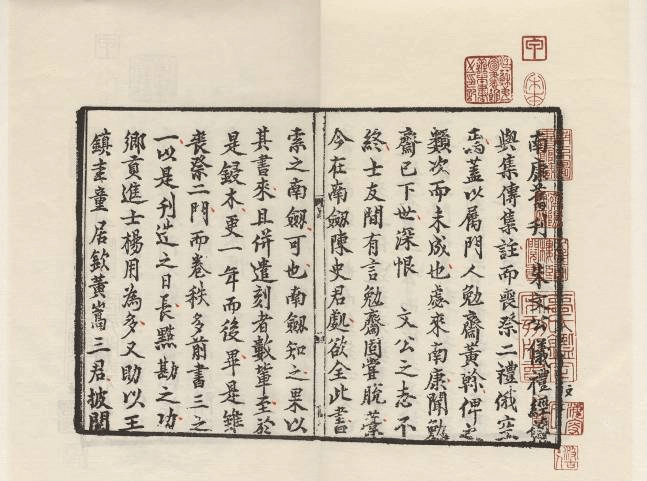 南康舊刊朱文公儀禮經傳
與集傳集註而喪祭二禮俄空
焉蓋以屬門人勉齋黃榦俾之
類次而未成也虙來南康聞勉
齋已下世深恨　文公之志不
終士友間有言勉齋固嘗脫藁
今在南劔陳史君處欲全此書
索之南劔可也南劔知之果以
其書來且併遣刻者數輩至於
是鋟木更一年而後畢是雖
喪祭二門而卷秩多前書三之
一以是刊造之日長㸃勘之功
鄉貢進士楊用為多又助以王
鎮圭童居欽黃嵩三君披閱